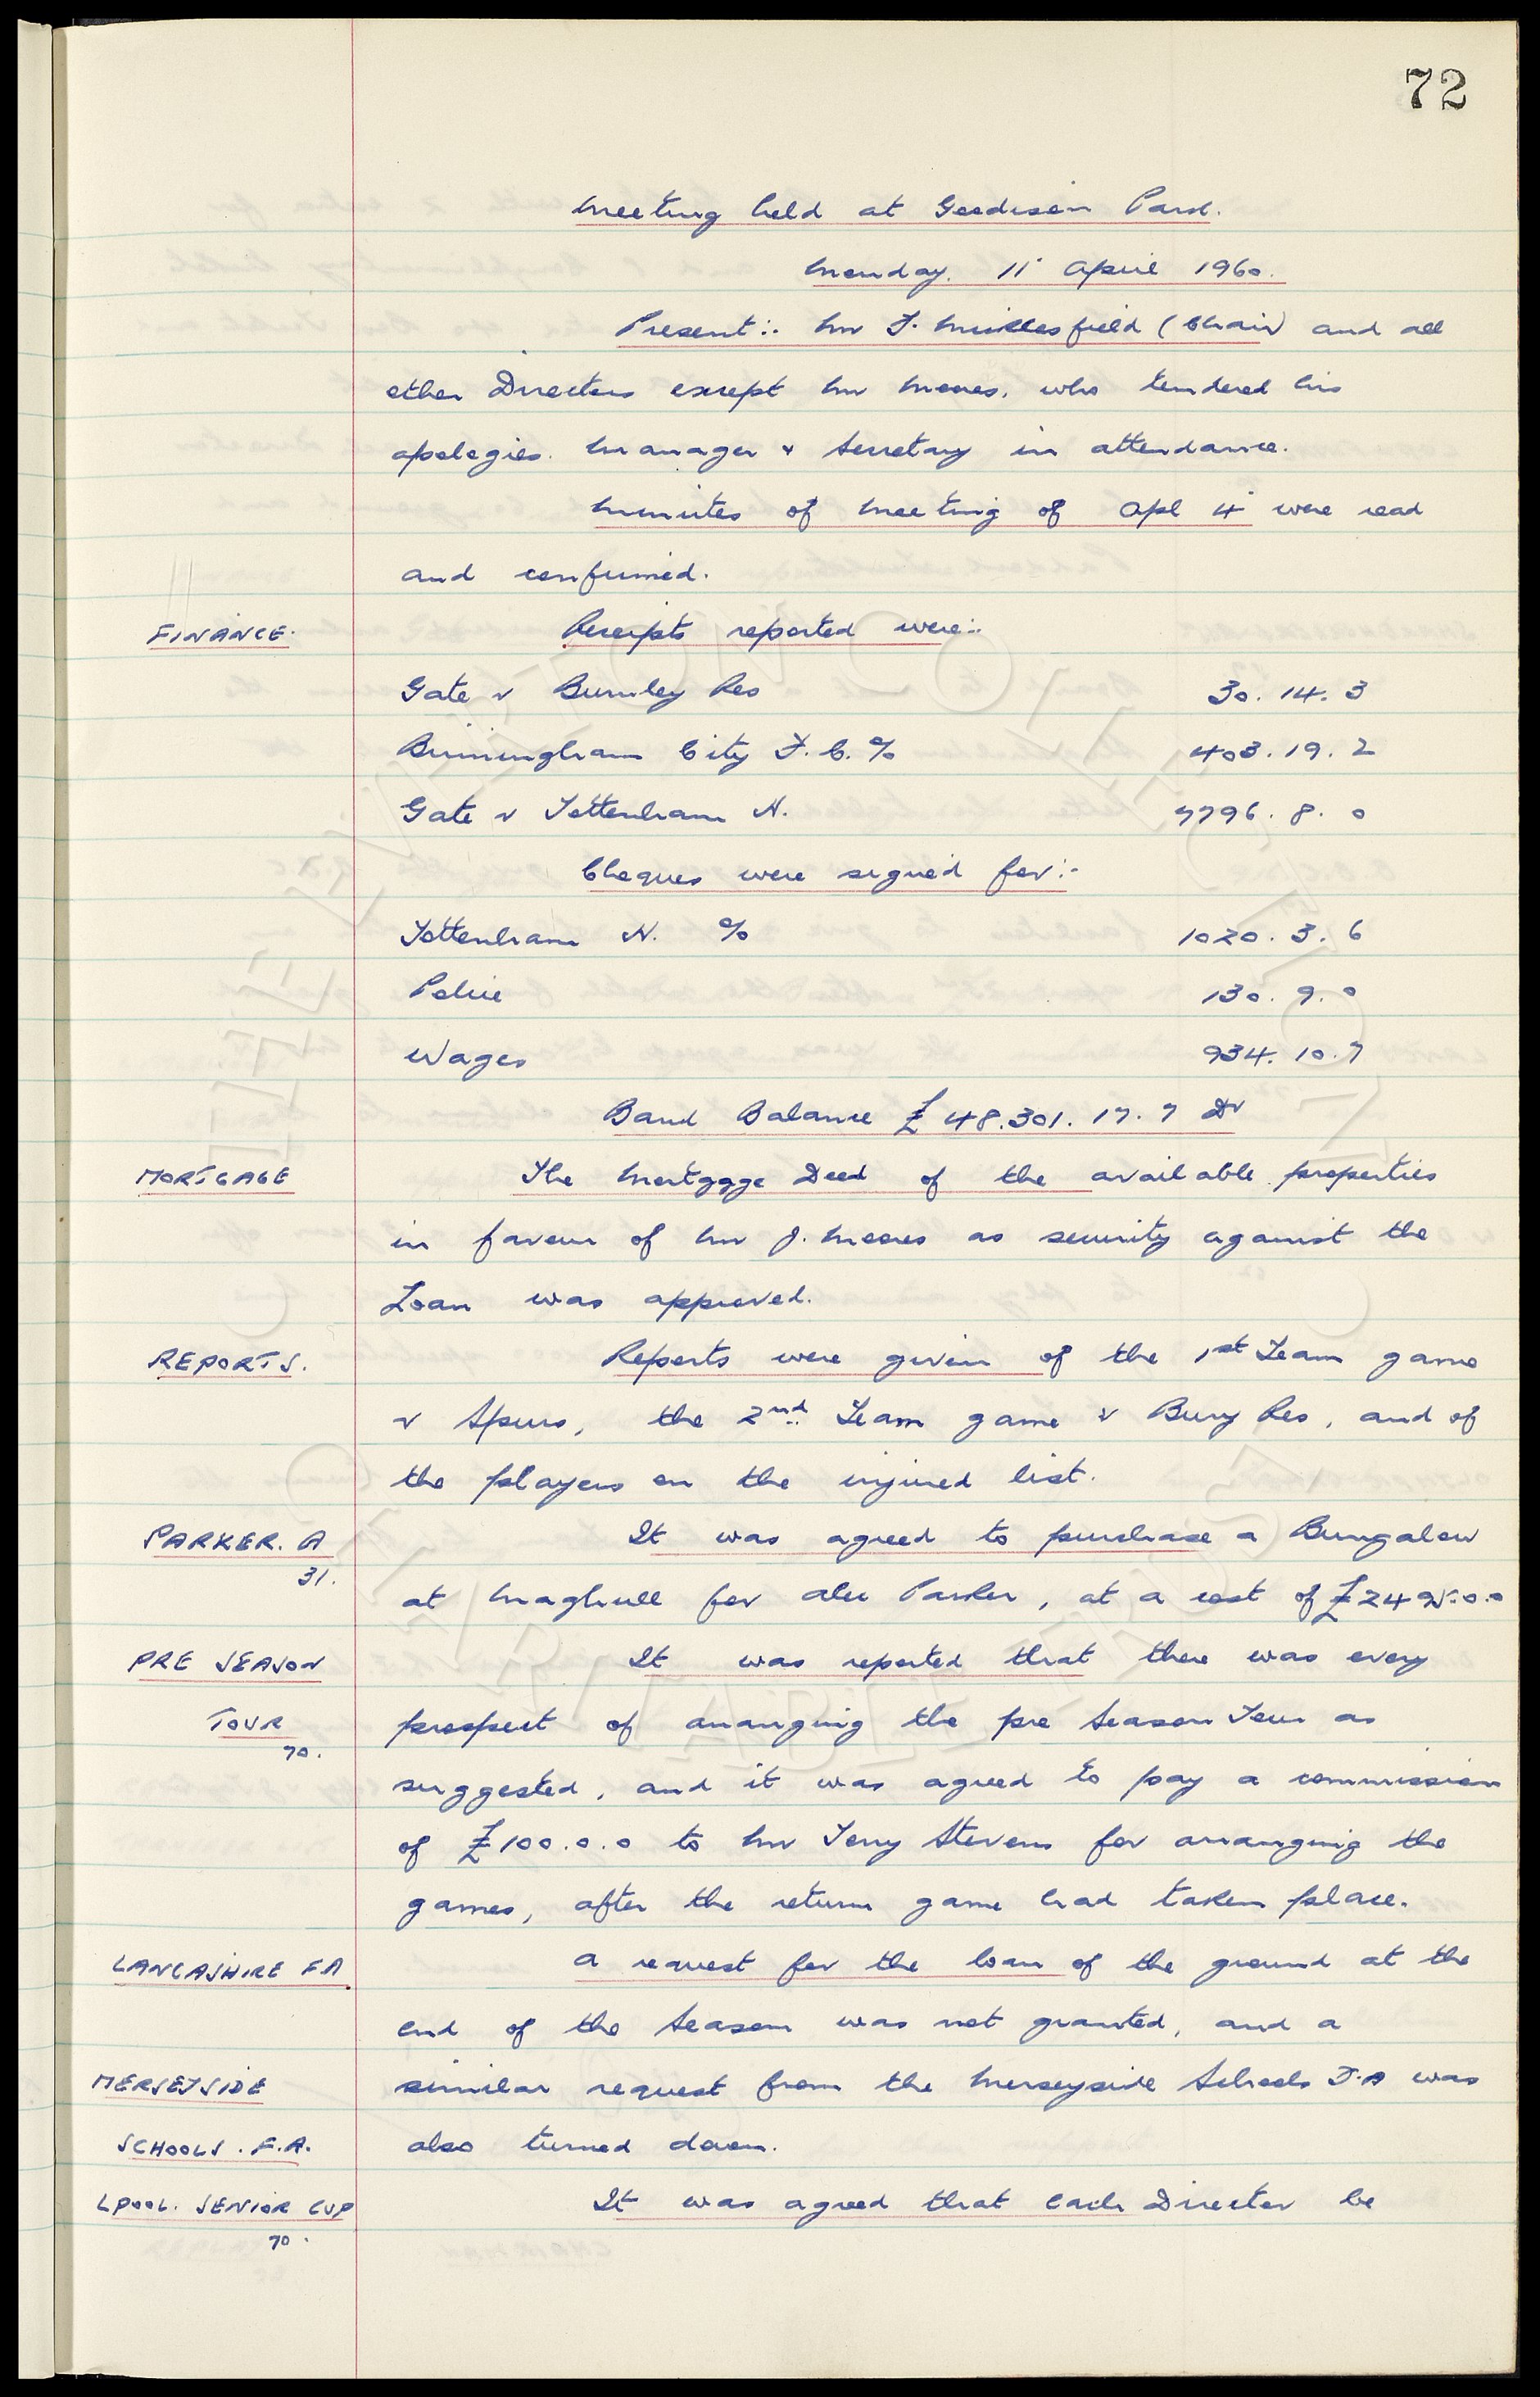 72
Meeting held at Goodison Park.
Monday. 11 April 1960.
Present:. Mr F. Micklesfield (Chair) and all
other Directors except Mr Moores, who tendered his
apologies. Manager & Secretary in attendance.
Minutes of Meeting of Apl 4 were read
and confirmed.
FINANCE. Receipts reported were:.
Gate v Burnley Res 30. 14. 3
Birmingham City F.C. % 403. 19. 2
Gate v Tottenham H. 7796. 8. 0
Cheques were signed for:-
Tottenham H. % 1020. 3. 6
Police 130. 9. 0
Wages 934. 10. 7
Bank Balance £48.301. 17. 7 Dr
MORTGAGE The Mortgage Deed of the available properties
in favour of Mr J. Moores as security against the
Loan was approved.
REPORTS. Reports were given of the 1st Team game
v Spurs, the 2nd Team game v Bury Res, and of
the players on the injured list.
PARKER. A It was agreed to purchase a Bungalow
31.
at Maghull for Alec Parker, at a cost of £2495.0.0
PRE SEASON It was reported that there was every
TOUR prospect of arranging the pre Season Tour as
70.
suggested, and it was agreed to pay a commission
of £100.0.0 to Mr Terry Stevens for arranging the
games, after the return game had taken place.
LANCASHIRE FA A request for the loan of the ground at the
end of the Season was not granted, and a
MERSEYSIDE similar request from the Merseyside Schools F.A was
SCHOOLS. F.A. also turned down.
LPOOL. SENIOR CUP It was agreed that each Director be
70.